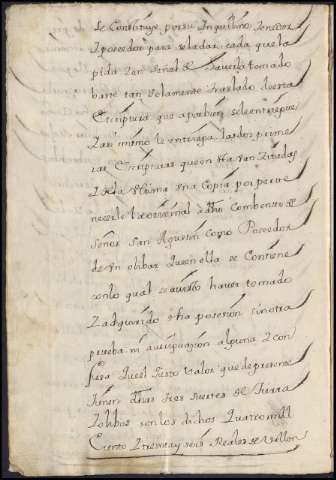 se Constituye por su Inquilino, tenedor
I posedor para sela dar cada que la
pida I en señal de haverlo tomado
baste tan solamente traslado de esta
Escriptura que aprueban se le entregue
I asi mismo le entrega las dos prime
ras Escripturas que en esta van Zitadas
I de la ultima una Copia por perte
necer le el orixinal a dho Combento de
Señor San Agustin Como Poseedor
de un olibar que en ella se Contiene
con lo qual se a visto haver tomado
I adquirido dha posesion sin otra
prueba ni aberiguacion alguna I con
fiesa que el Justo valor que de presente
tienen dhas tres suertes de tierra
I olibos son los dichos quatro mill
Ciento I treinta y seis Reales de Vellon